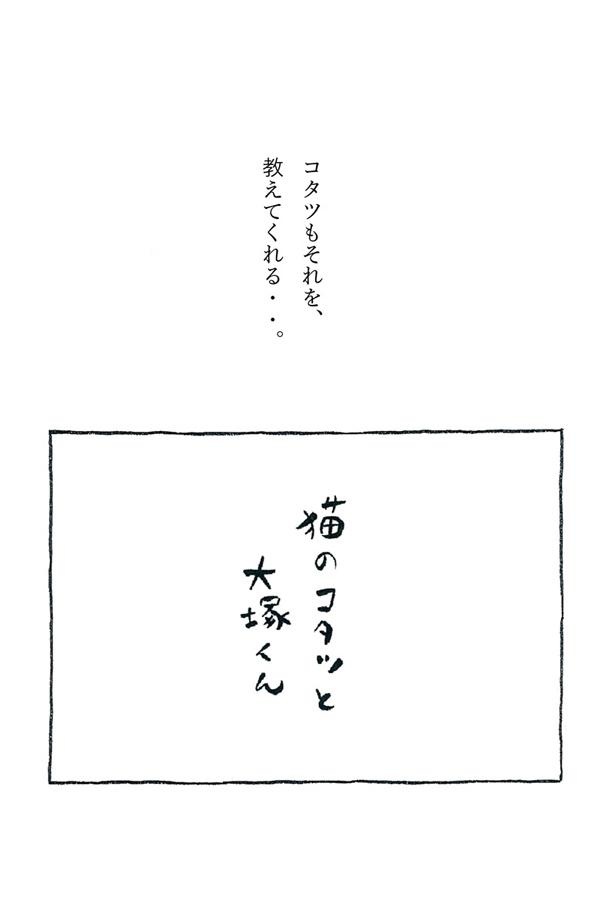 コタツもそれを、
教えてくれる・・。
猫のコタツと
大塚くん